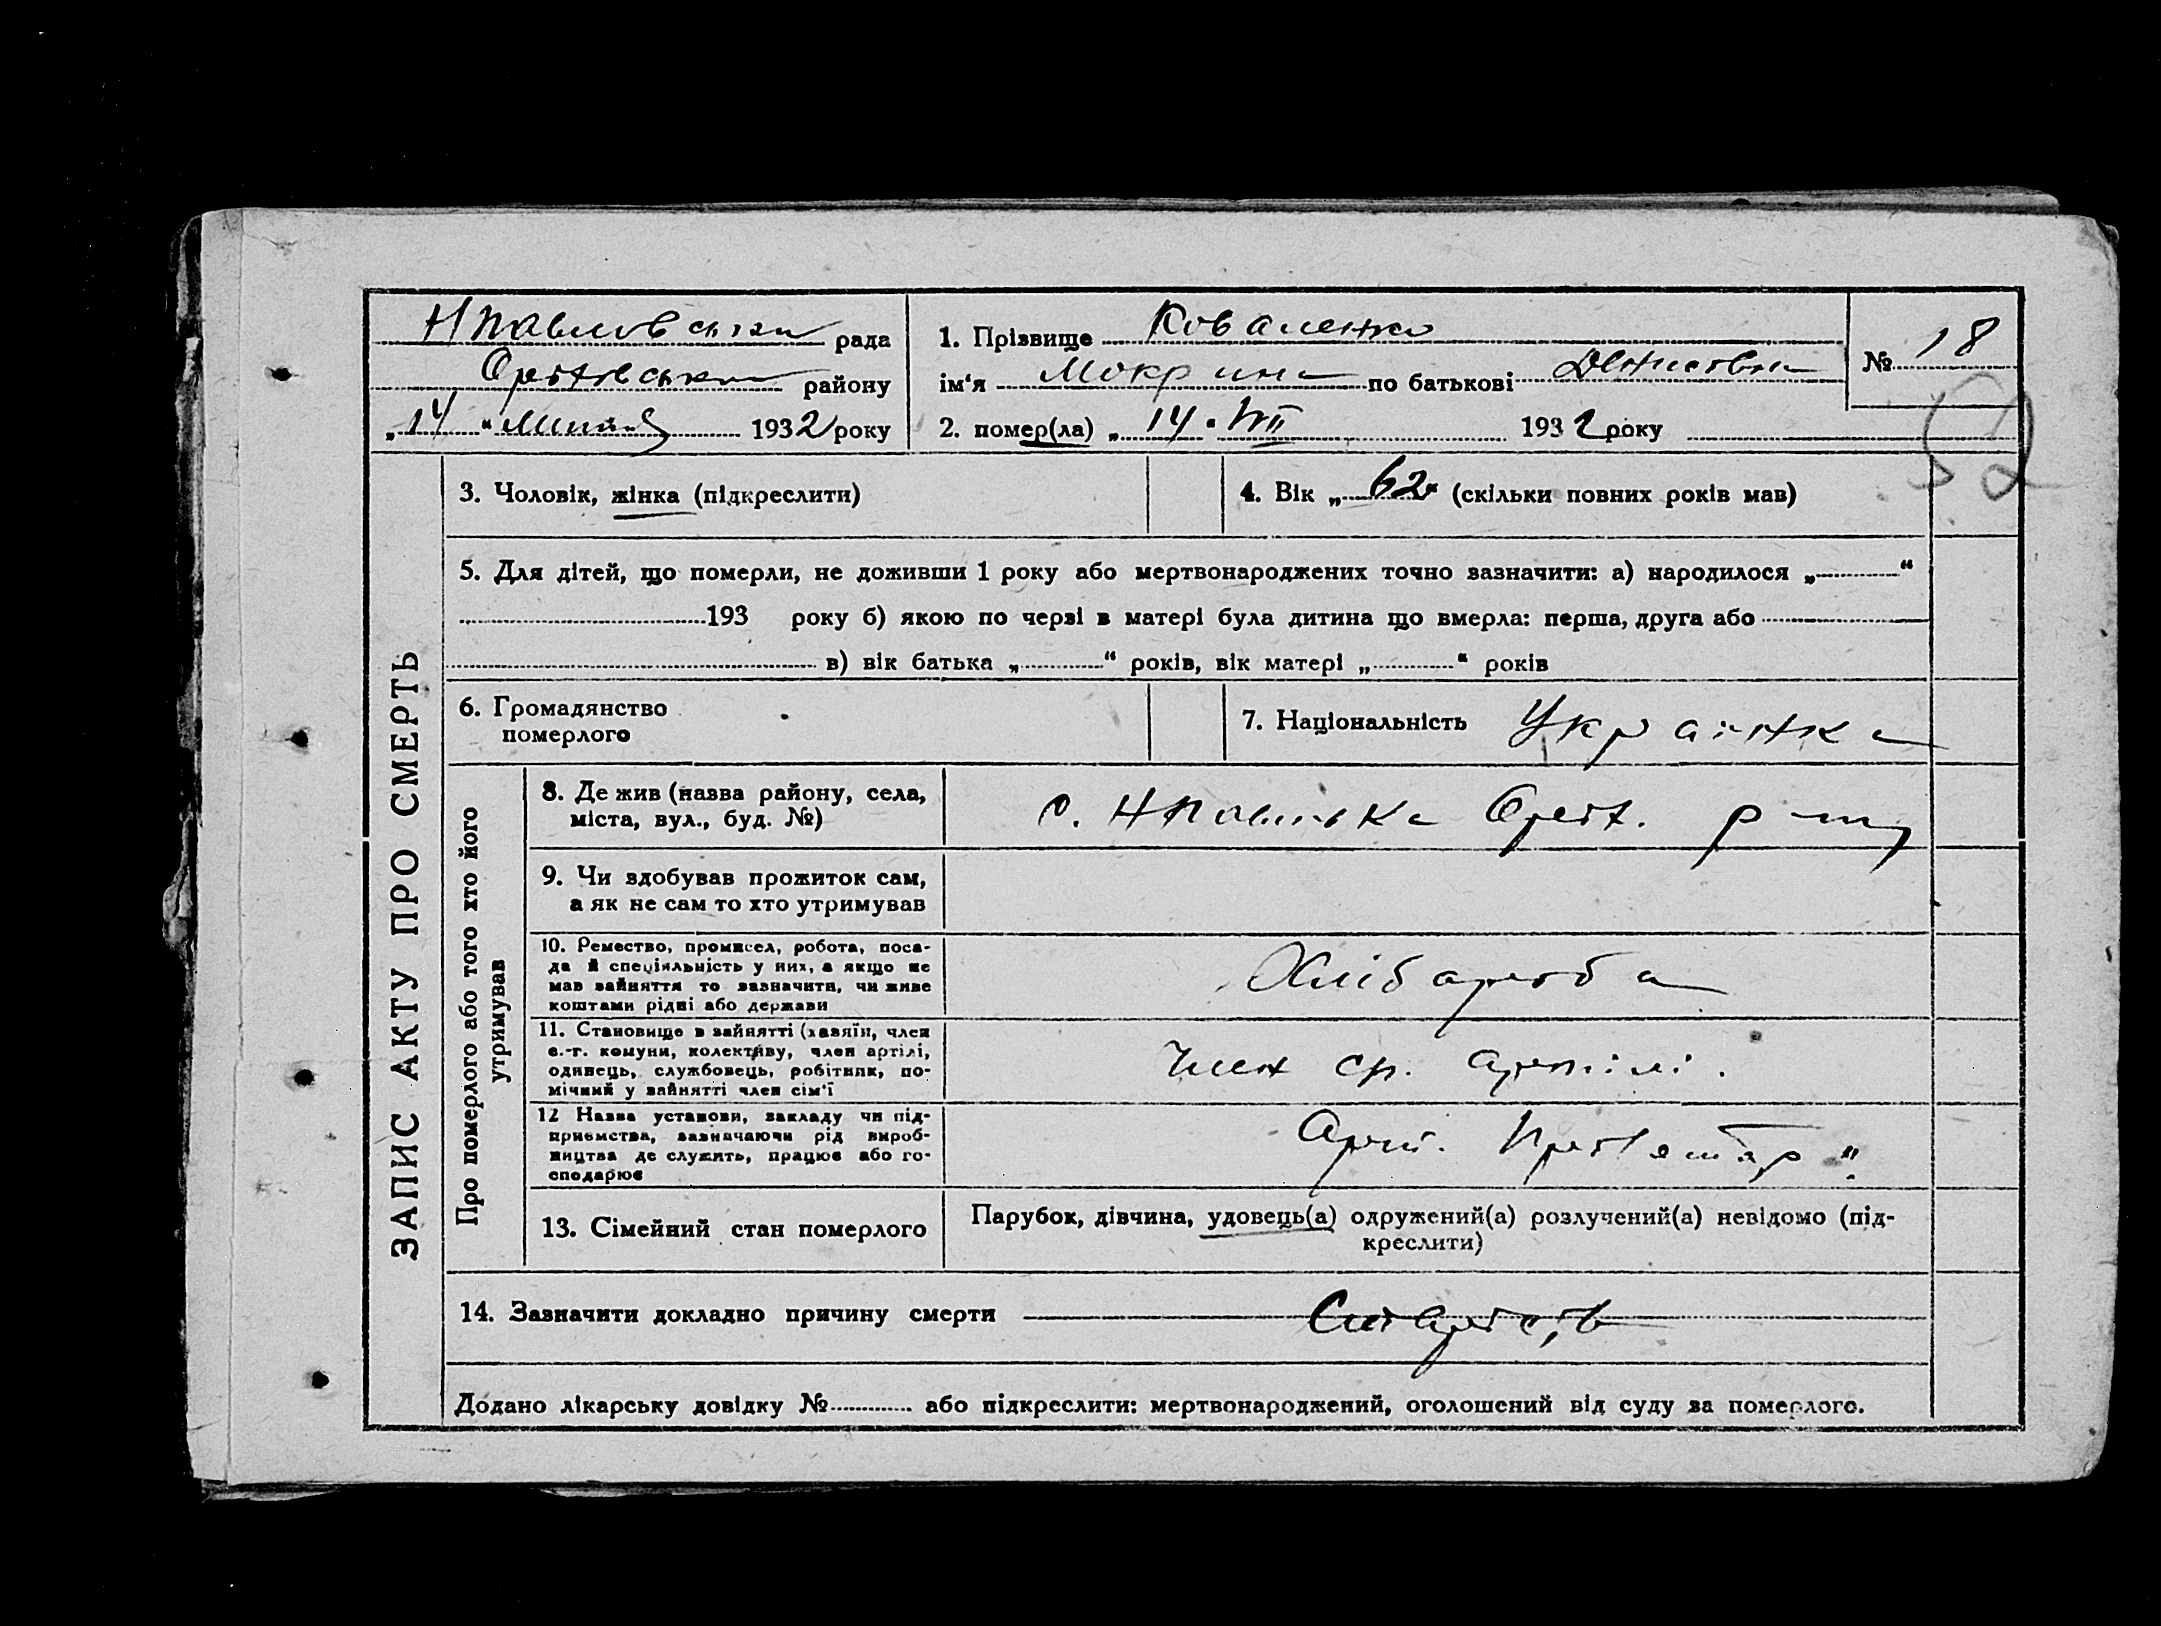 Н Павловська рада
Оріхівського району
„14“ Липня 1932 року
1. Прізвище Коваленко
ім‘я Мокрина по батькові Денисовна
2. помер(ла) „14“ VII 1932 року
№ 18
52
ЗАПИС АКТУ ПРО СМЕРТЬ
3. Чоловік, жінка (підкреслити)
4. Вік „62“ (скільки повних років мав)
5. Для дітей, що померли, не доживши 1 року або мертвонароджених точно зазначити: а) народилося „ “
193 року б) якою по черзі в матері була дитина що вмерла: перша, друга або
в) вік батька „ “ років, вік матері „ “ років
6. Громадянство
померлого
7. Національність Українка
Про померлого або того хто його
утримував
8. Де жив (назва району, села,
міста, вул., буд. №)
с. Н Павлівка Оріх. р-ну
9. Чи здобував прожиток сам,
а як не сам то хто утримував
10. Ремество, промисел, робота, поса-
да й спеціяльність у них, а якщо не
мав зайняття то зазначити, чи живе
коштами рідні або держави
Хлібароба
11. Становище в зайнятті (хазяїн, член
с.-г. комуни, колективу, член артілі,
одинець, службовець, робітник, по-
мічний у зайнятті член сім‘ї
Член ср. артілі.
12 Назва установи, закладу чи під-
приємства, зазначаючи рід вироб-
ництва де служить, працює або го-
сподарює
Арт. Пролетар“
13. Сімейний стан померлого
Парубок, дівчина, удовець(а) одружений(а) розлучений(а) невідомо (під-
креслити)
14. Зазначити докладно причину смерти Старість
Додано лікарську довідку № або підкреслити: мертвонароджений, оголошений від суду за померлого.